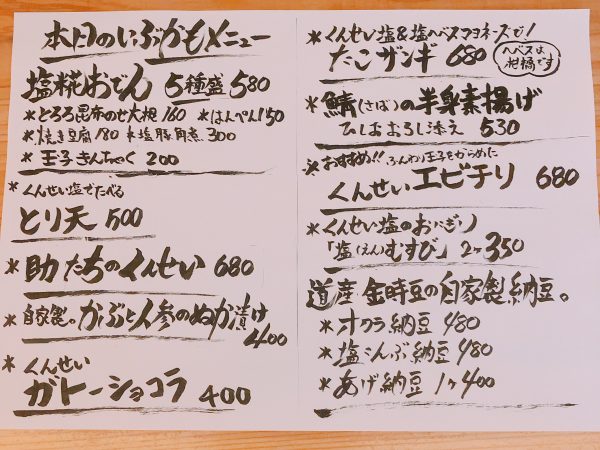 本日のいぶかもメニュー
塩糀おでん 5種盛 580
*とろろ昆布のせ大根 160 *はんぺん150
*焼き豆腐180 *塩豚角煮 300
*玉子きんちゃく 200
*くんせい塩でたべる
とり天 500
*助だちのくんせい 680
*自家製。かぶと人参のぬか漬け
400
*くんせい
ガトーショコラ 400
*くんせい塩&塩ヘベスマヨネーズで!
たこザンギ 680
ヘベスは
柑橘です
*鯖(さば)の半身素揚げ
ひしおおろし添え 530
*おすすめ!! ふんわり玉子をからめに
くんせいエビチリ 680
*くんせい塩のおにぎり
「塩(えん)むすび」2ケ350
道産 金時豆の自家製納豆。
*オクラ納豆 480
*塩こんぶ納豆 480
*あげ納豆 1ケ400